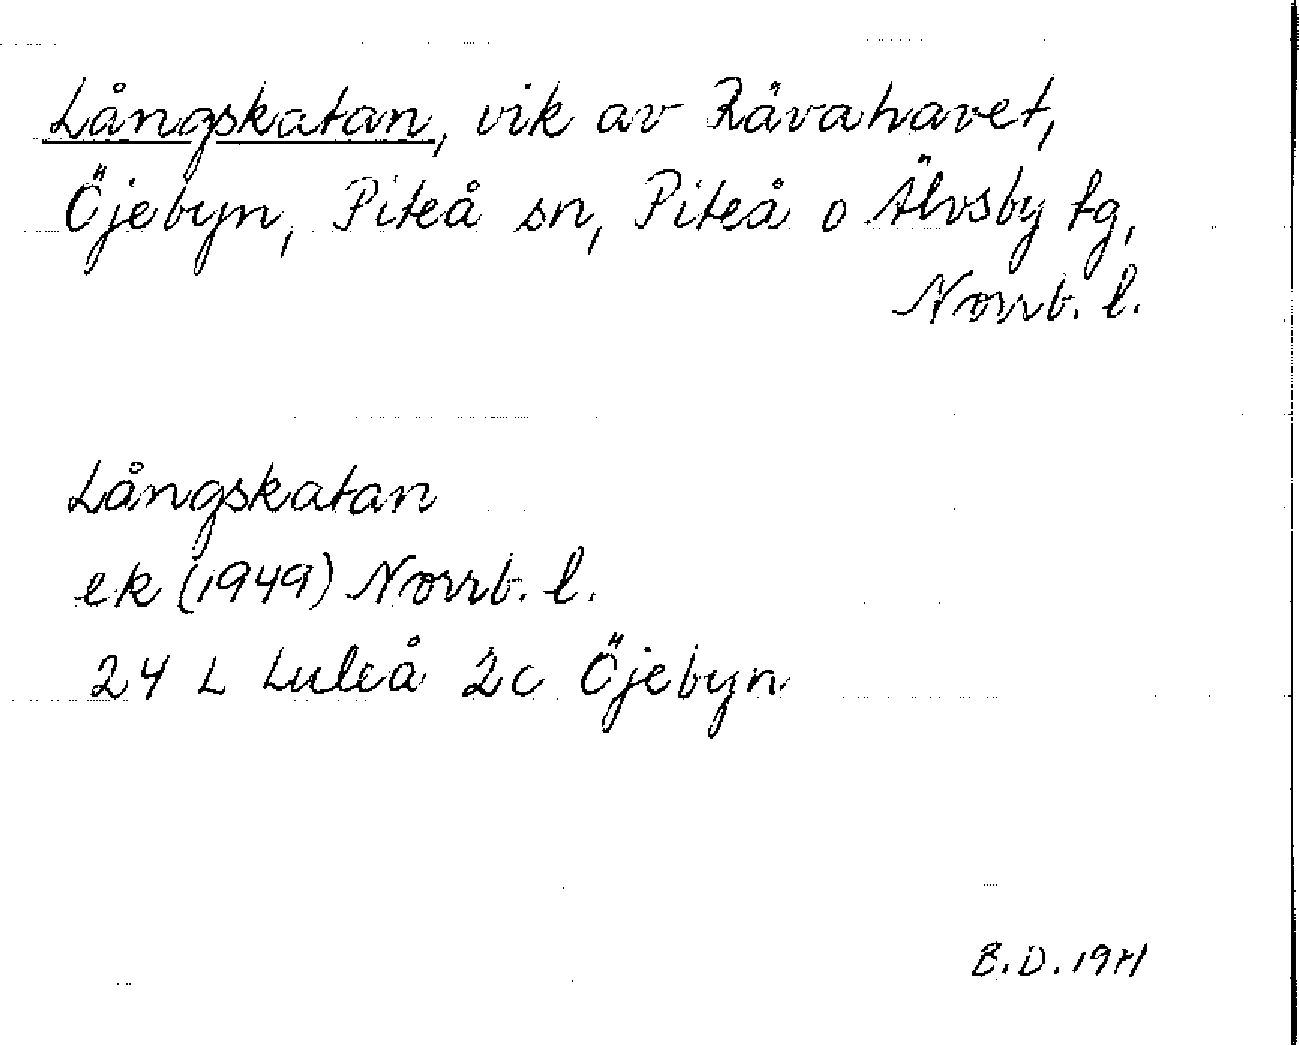 Långskatan, vik av Rävahavet,
Öjebyn, Piteå sn, Piteå o Älvsby tg,
Norrb. l.
Långskatan
ek (1949) Norrb. l.
24 L Luleå 2c Öjebyn
B.D. 1971